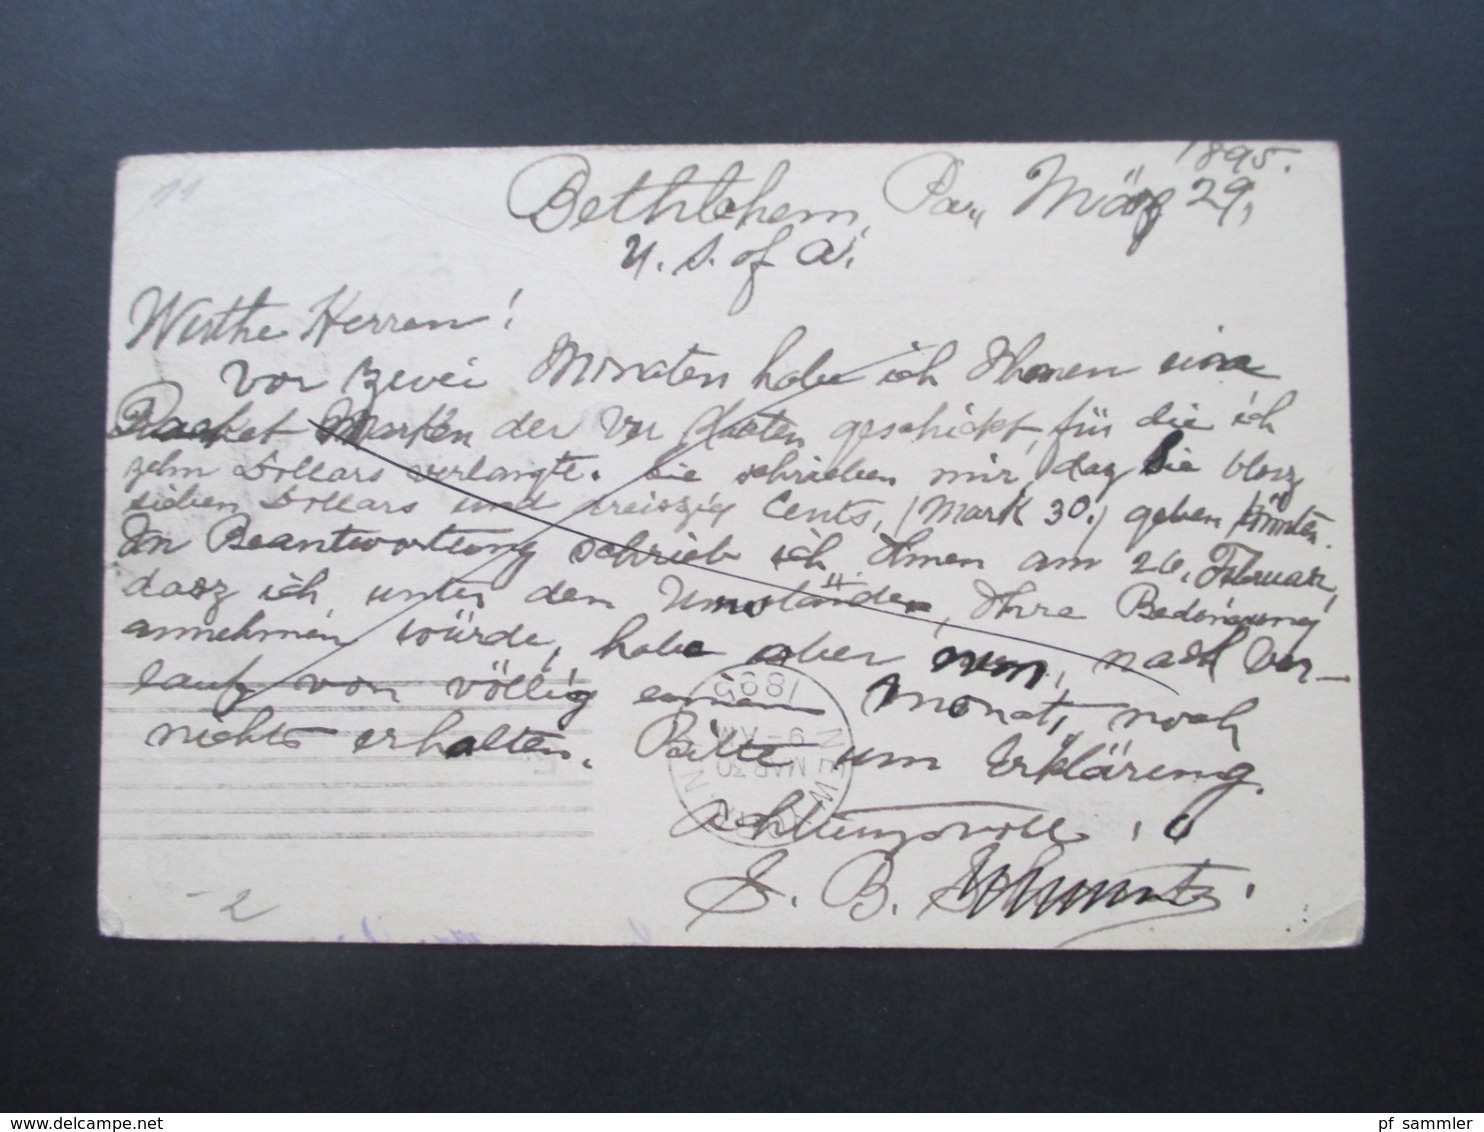 11
1895.
Bethlehem, Pa., März 29,
U. S. of A.
Werthe Herren!
Vor zwei Monaten habe ich Ihnen eine
Packet Marken der Ver Staaten geschickt, für die ich
zehn Dollars verlangte. Sie schrieben mir, dasz Sie blosz
sieben Dollars und dreiszig Cents, (Mark 30.) geben könnten.
In Beantwortung schrieb ich Ihnen am 26. Februar,
dasz ich, unter den Umständen, Ihre Bedingung
annehmen würde, habe aber nun, nach Ver-
lauf von völlig einem Monat, noch
nichts erhalten. Bitte um Erklärung.
Achtungsvoll,
S. B.
NEW YORK
MAR 30
9-AM
1895
-2
delcampe.net
pf_sammler